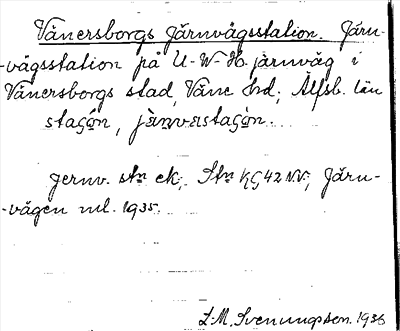 Vänersborgs Järnvägsstation. Järn-
-vägsstation på U-W-Hb. järnväg i
Vänersborgs stad, Väne hd, Älfsb. län
jernv. stn ek.; Stn KG 42 N.V.; Järn-
-vägen ml. 1935.
L.M. Svenungsson. 1936